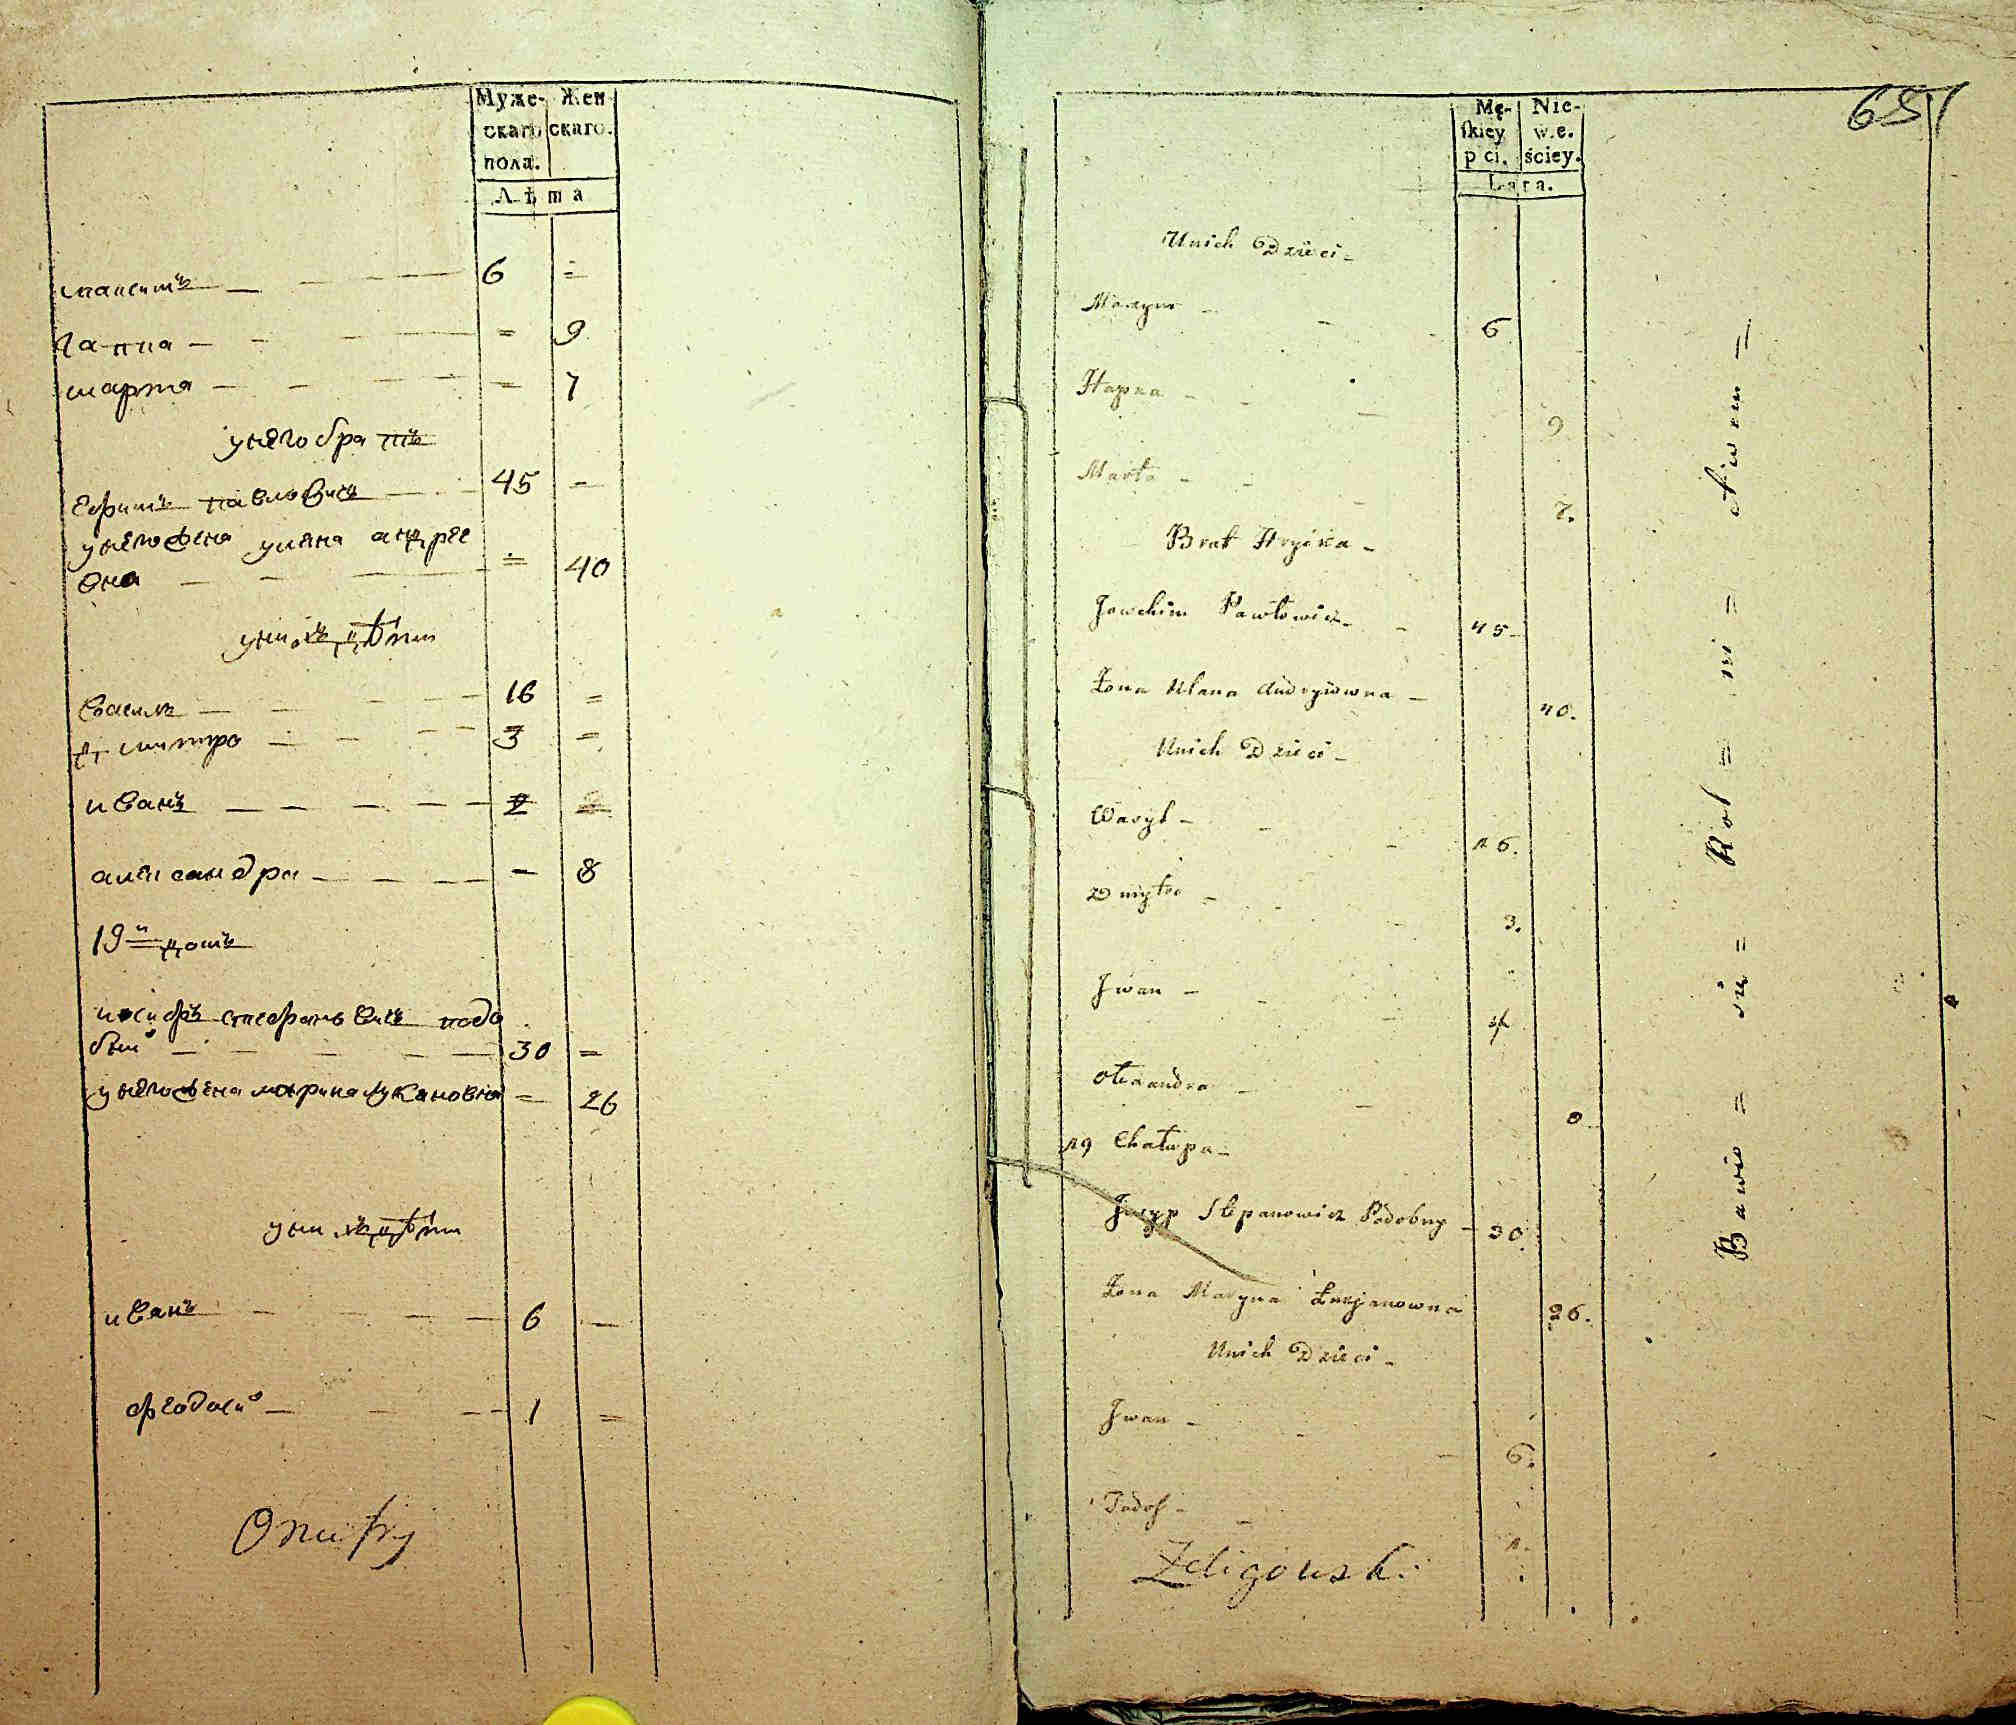 Муже- Жен
скаго скаго.
пола.
Лѣта
максимъ — 6 =
Ганна — = 9
марта — = 7
унего братъ
Ефимъ павловичъ — 45 =
унего жена уляна андрее
вна — = 40
унихъ дѣти
василь — 16 =
дмитро — 3 =
иванъ — 2 =
александра — = 8
19й домъ
иосифъ стефановичъ подо
бный — 30 =
унего жена марина лукяновна = 26
унихъ дѣти
иванъ — 6 —
феодосий — 1 =
Onufry
681
Mę- Nie-
skiey w.e.
p ci. ściey.
Lata.
Unich Dzieci -
Maxym - 6
Hapna - 9
Marta - 7.
Brat Hryćka -
Jowchim Pawłowicz - 45 -
Żona Ulana Andryiowna - 40.
Unich Dzieci -
Wasyl - 16.
Dmytro - 3.
Jwan -
Olexandra - 8
19 Chałupa -
Jozyp Stepanowicz Podobny - 30.
Żona Maryna Łukjanowna 26.
Unich Dzieci -
Jwan - 6.
Todos - 1.
Zeligowski